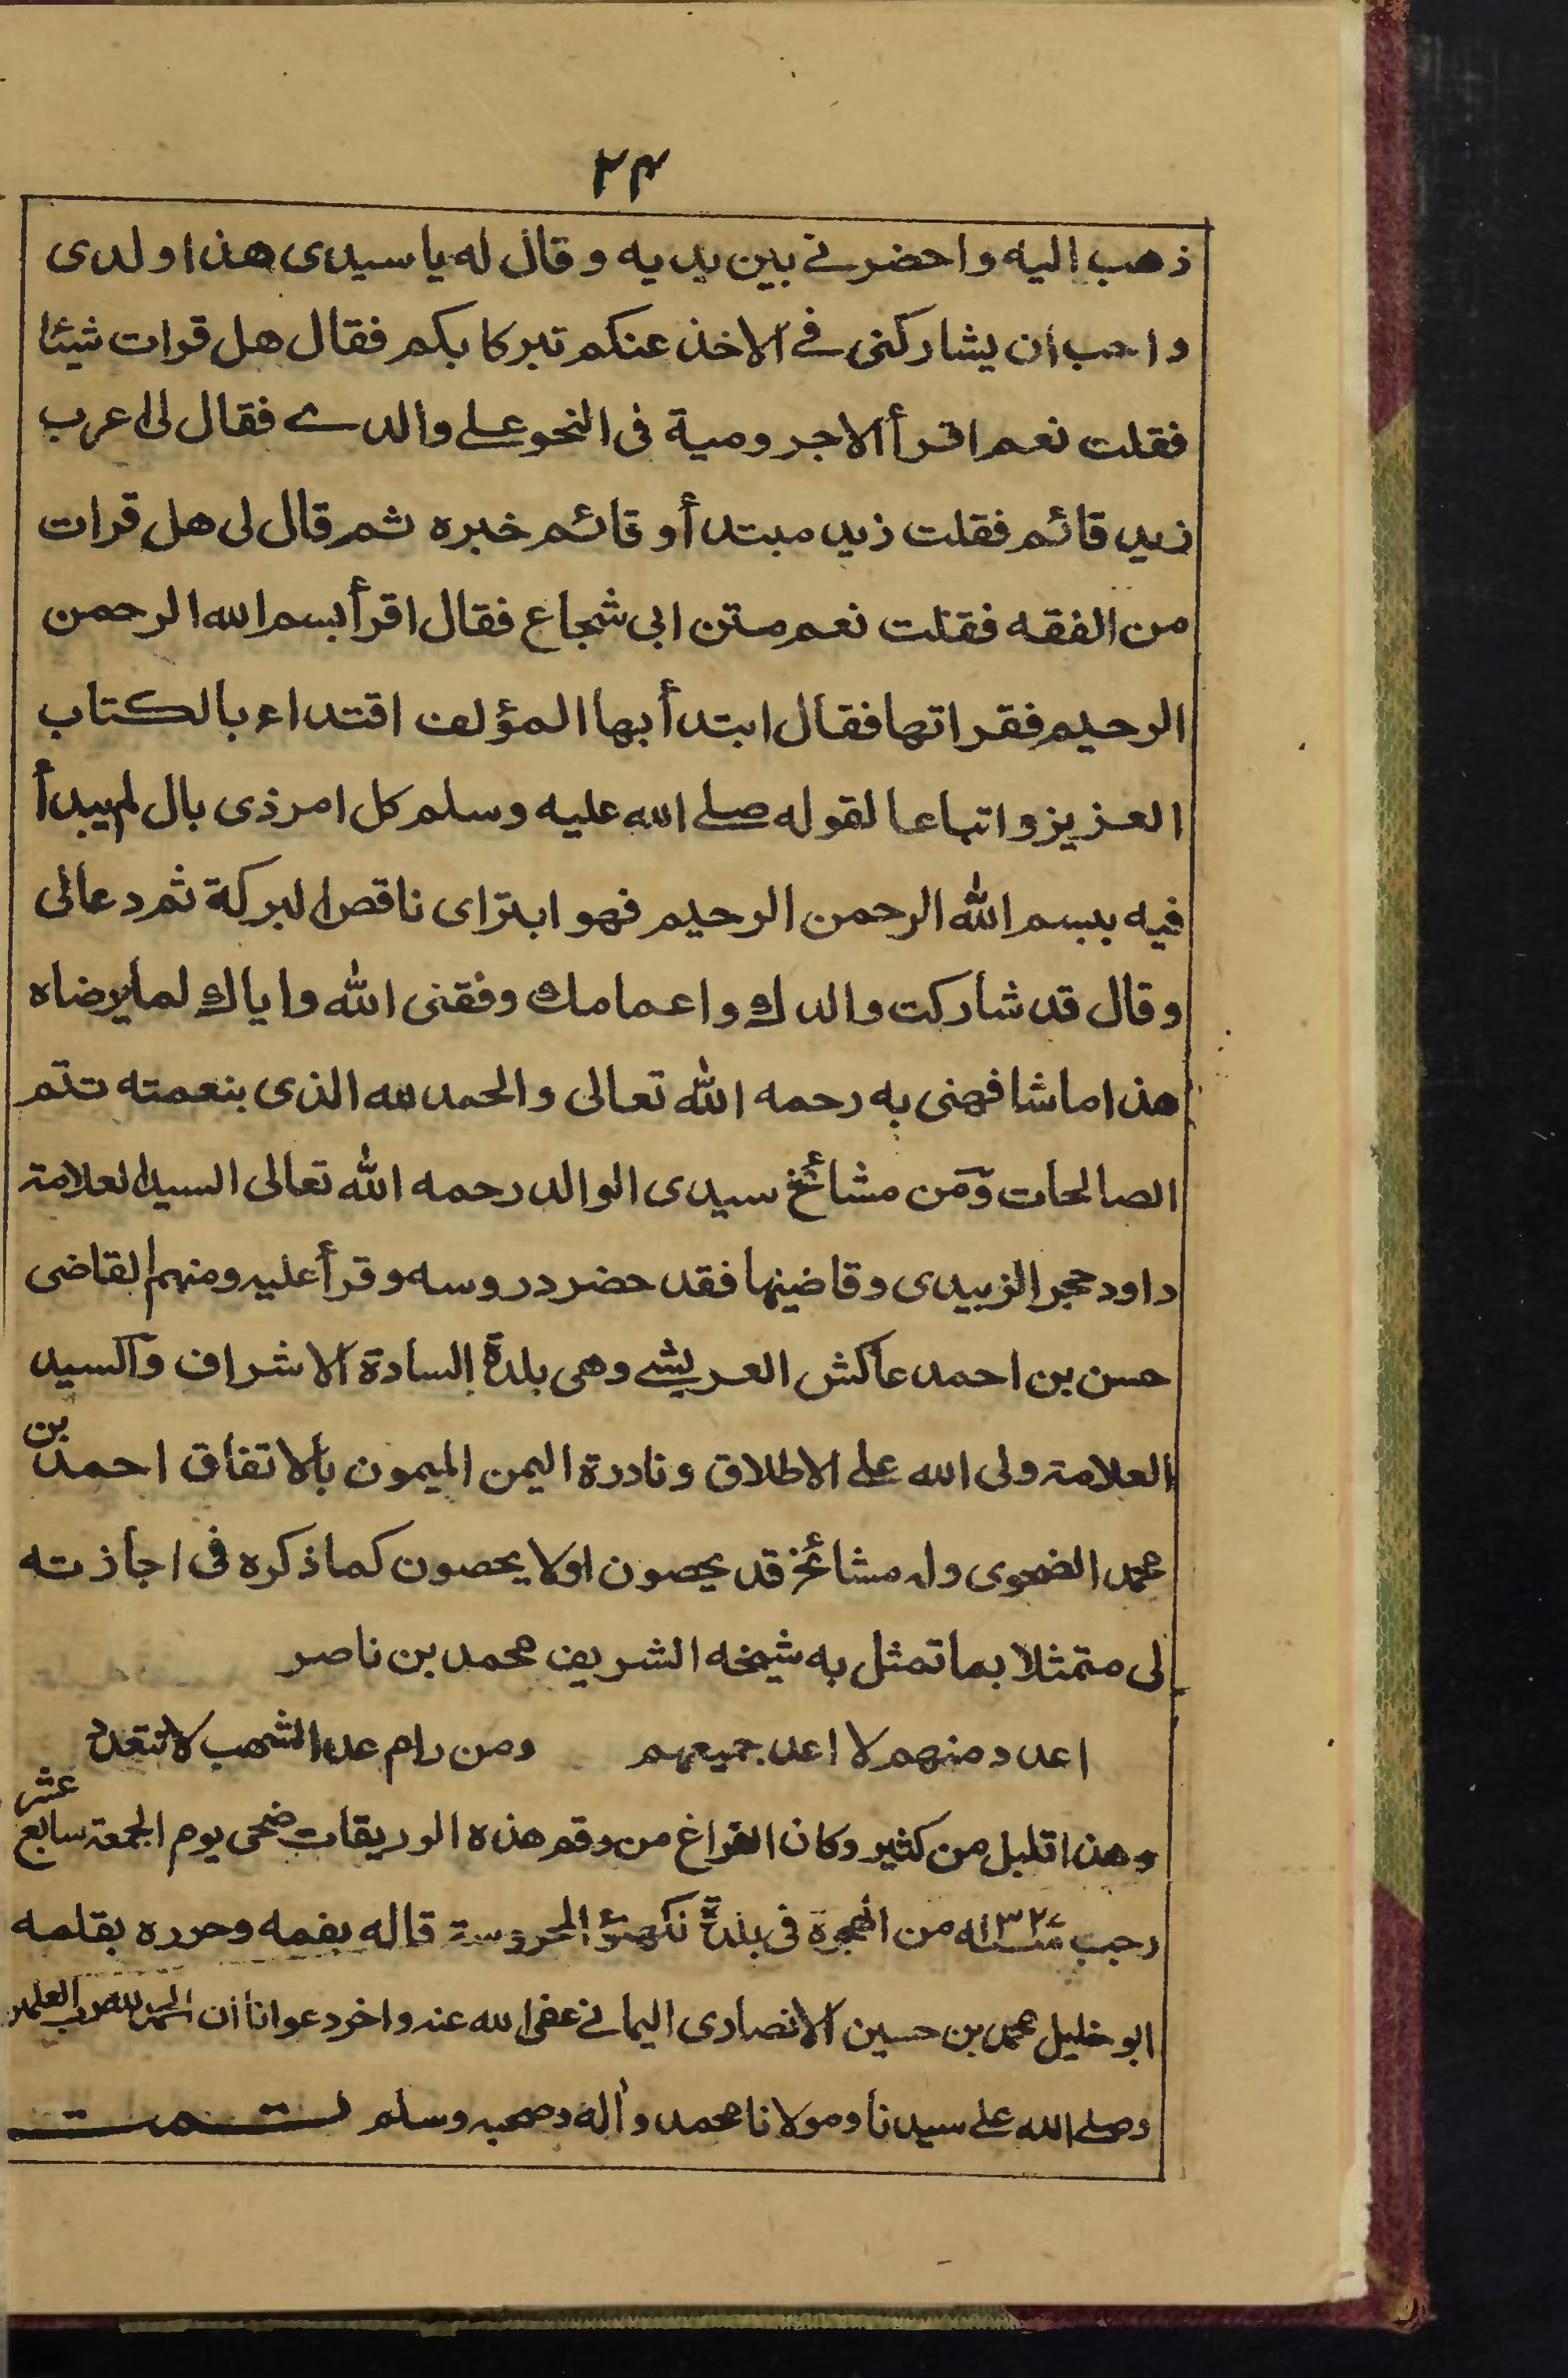 ٢٤
ذهب اليه واحضرنے بين يديه وقال له يا سيدى هذا ولدى
واحب ان يشاركنى فے الاخذ عنكم تبركا بكم فقال هل قرات شيئا
فقلت نعم اقرأ الاجرومية فى النحو علے والدے فقال لى اعرب
زيد قائم فقلت زيد مبتدأ وقائم خبره ثم قال لى هل قرات
من الفقه فقلت نعم متن ابى شجاع فقال اقرأ بسم الله الرحمن
الرحيم فقراتها فقال ابتدأ بها المؤلف اقتداء بالكتاب
العزيز واتباعا لقوله صلے الله عليه وسلم كل امر ذى بال لم يبدأ
فيه ببسم الله الرحمن الرحيم فهو ابتر اى ناقص البركة ثم دعا لى
وقال قد شاركت والدك واعمامك وفقنى الله واياك لما يرضاه
هذا ما شافهنى به رحمه الله تعالى والحمد لله الذى بنعمته تتم
الصالحات ومن مشائخ سيدى الوالد رحمه الله تعالى السيد العلامة
داود حجر الزبيدى وقاضيها فقد حضر دروسه وقرأ عليه ومنهم القاضى
حسن بن احمد عاكش العريشے وهى بلدة السادة الاشراف والسيد
العلامة ولى الله علے الاطلاق ونادرة اليمن الميمون بالاتفاق احمد بن
محمد الضحوى وله مشائخ قد يحصون اولا يحصون كما ذكره فى اجازته
لى متمثلا بما تمثل به شيخه الشريف محمد بن ناصر
اعدد منهم لا اعد جميعهم ومن رام عد الشهب لا تتعدد
وهذا قليل من كثير وكان الفراغ من رقم هذه الوريقات ضحى يوم الجمعة سابع عشر
رجب من الهجرة فى بلدة لكهنؤ المحروسة قاله بفمه وحرره بقلمه
ابو خليل محمد بن حسين الانصارى اليمانے عفى الله عنه واخر دعوانا ان الحمد لله رب العلمين
وصلے الله علے سيدنا ومولانا محمد واله وصحبه وسلم تمت